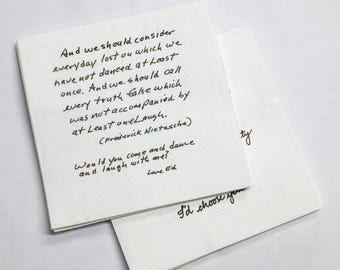 And we should consider
everyday lost on which we
have not danced at Least
once. And we should call
every truth false which
was not accompanied by
at Least one Laugh.
(Frederick Nietzsche)
Would you come and dance
and laugh with me?
Love Ed
I'd choose you